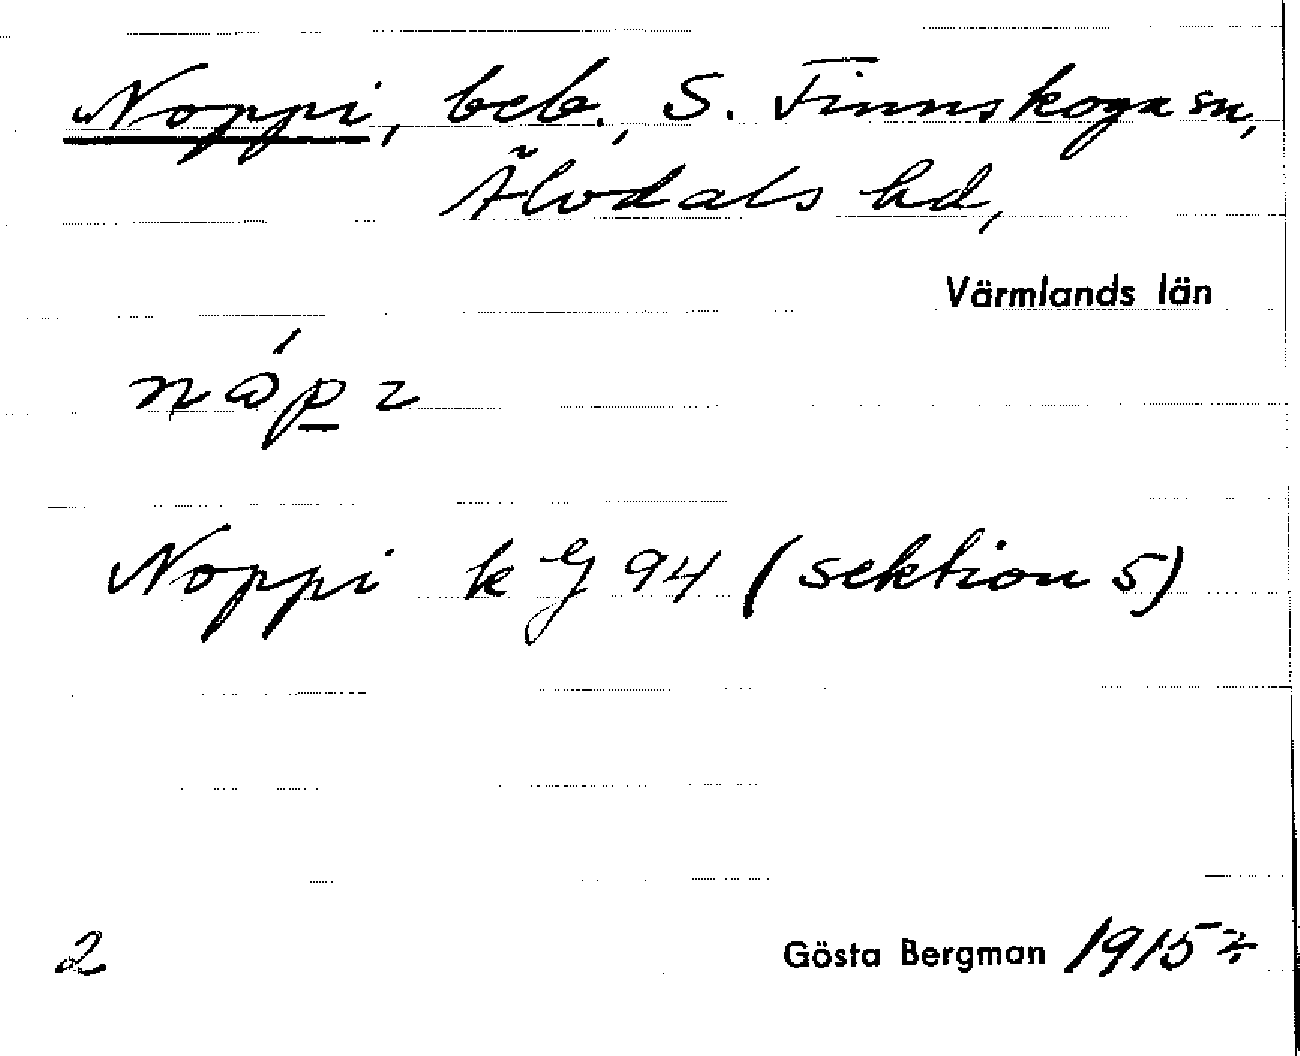 Noppi, beb., S. Finnskoga sn,
Älvdals hd,
Värmlands län
Noppi k G 94 (sektion 5)
2
Gösta Bergman 1915